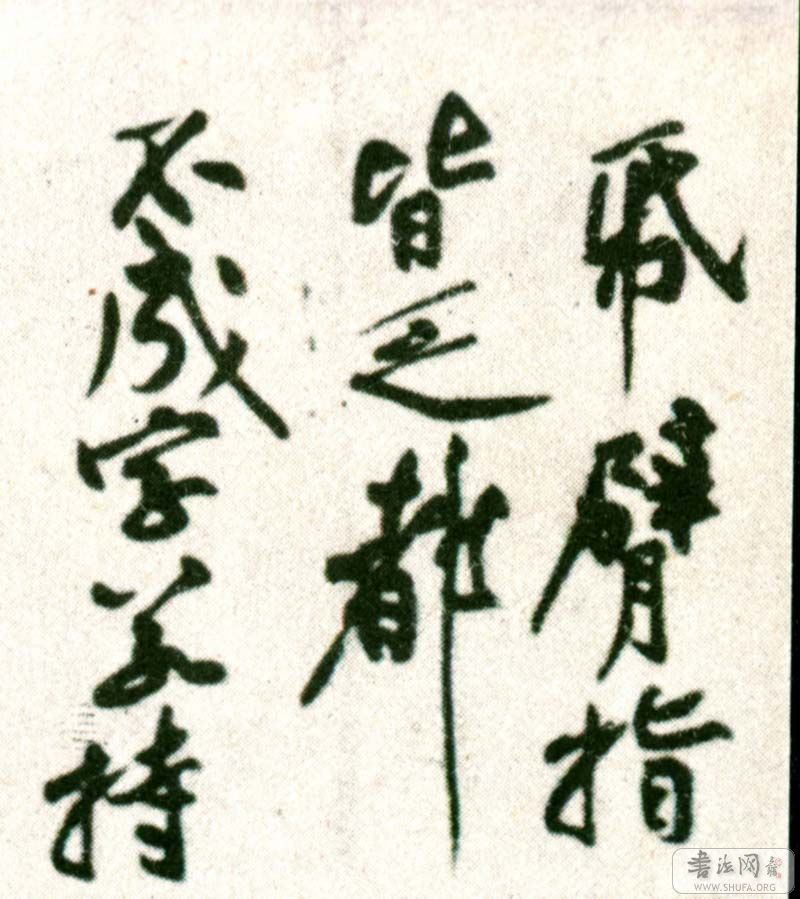 帋臂指
皆乏都
不成字若持
書法网
WWW.SHUFA.ORG